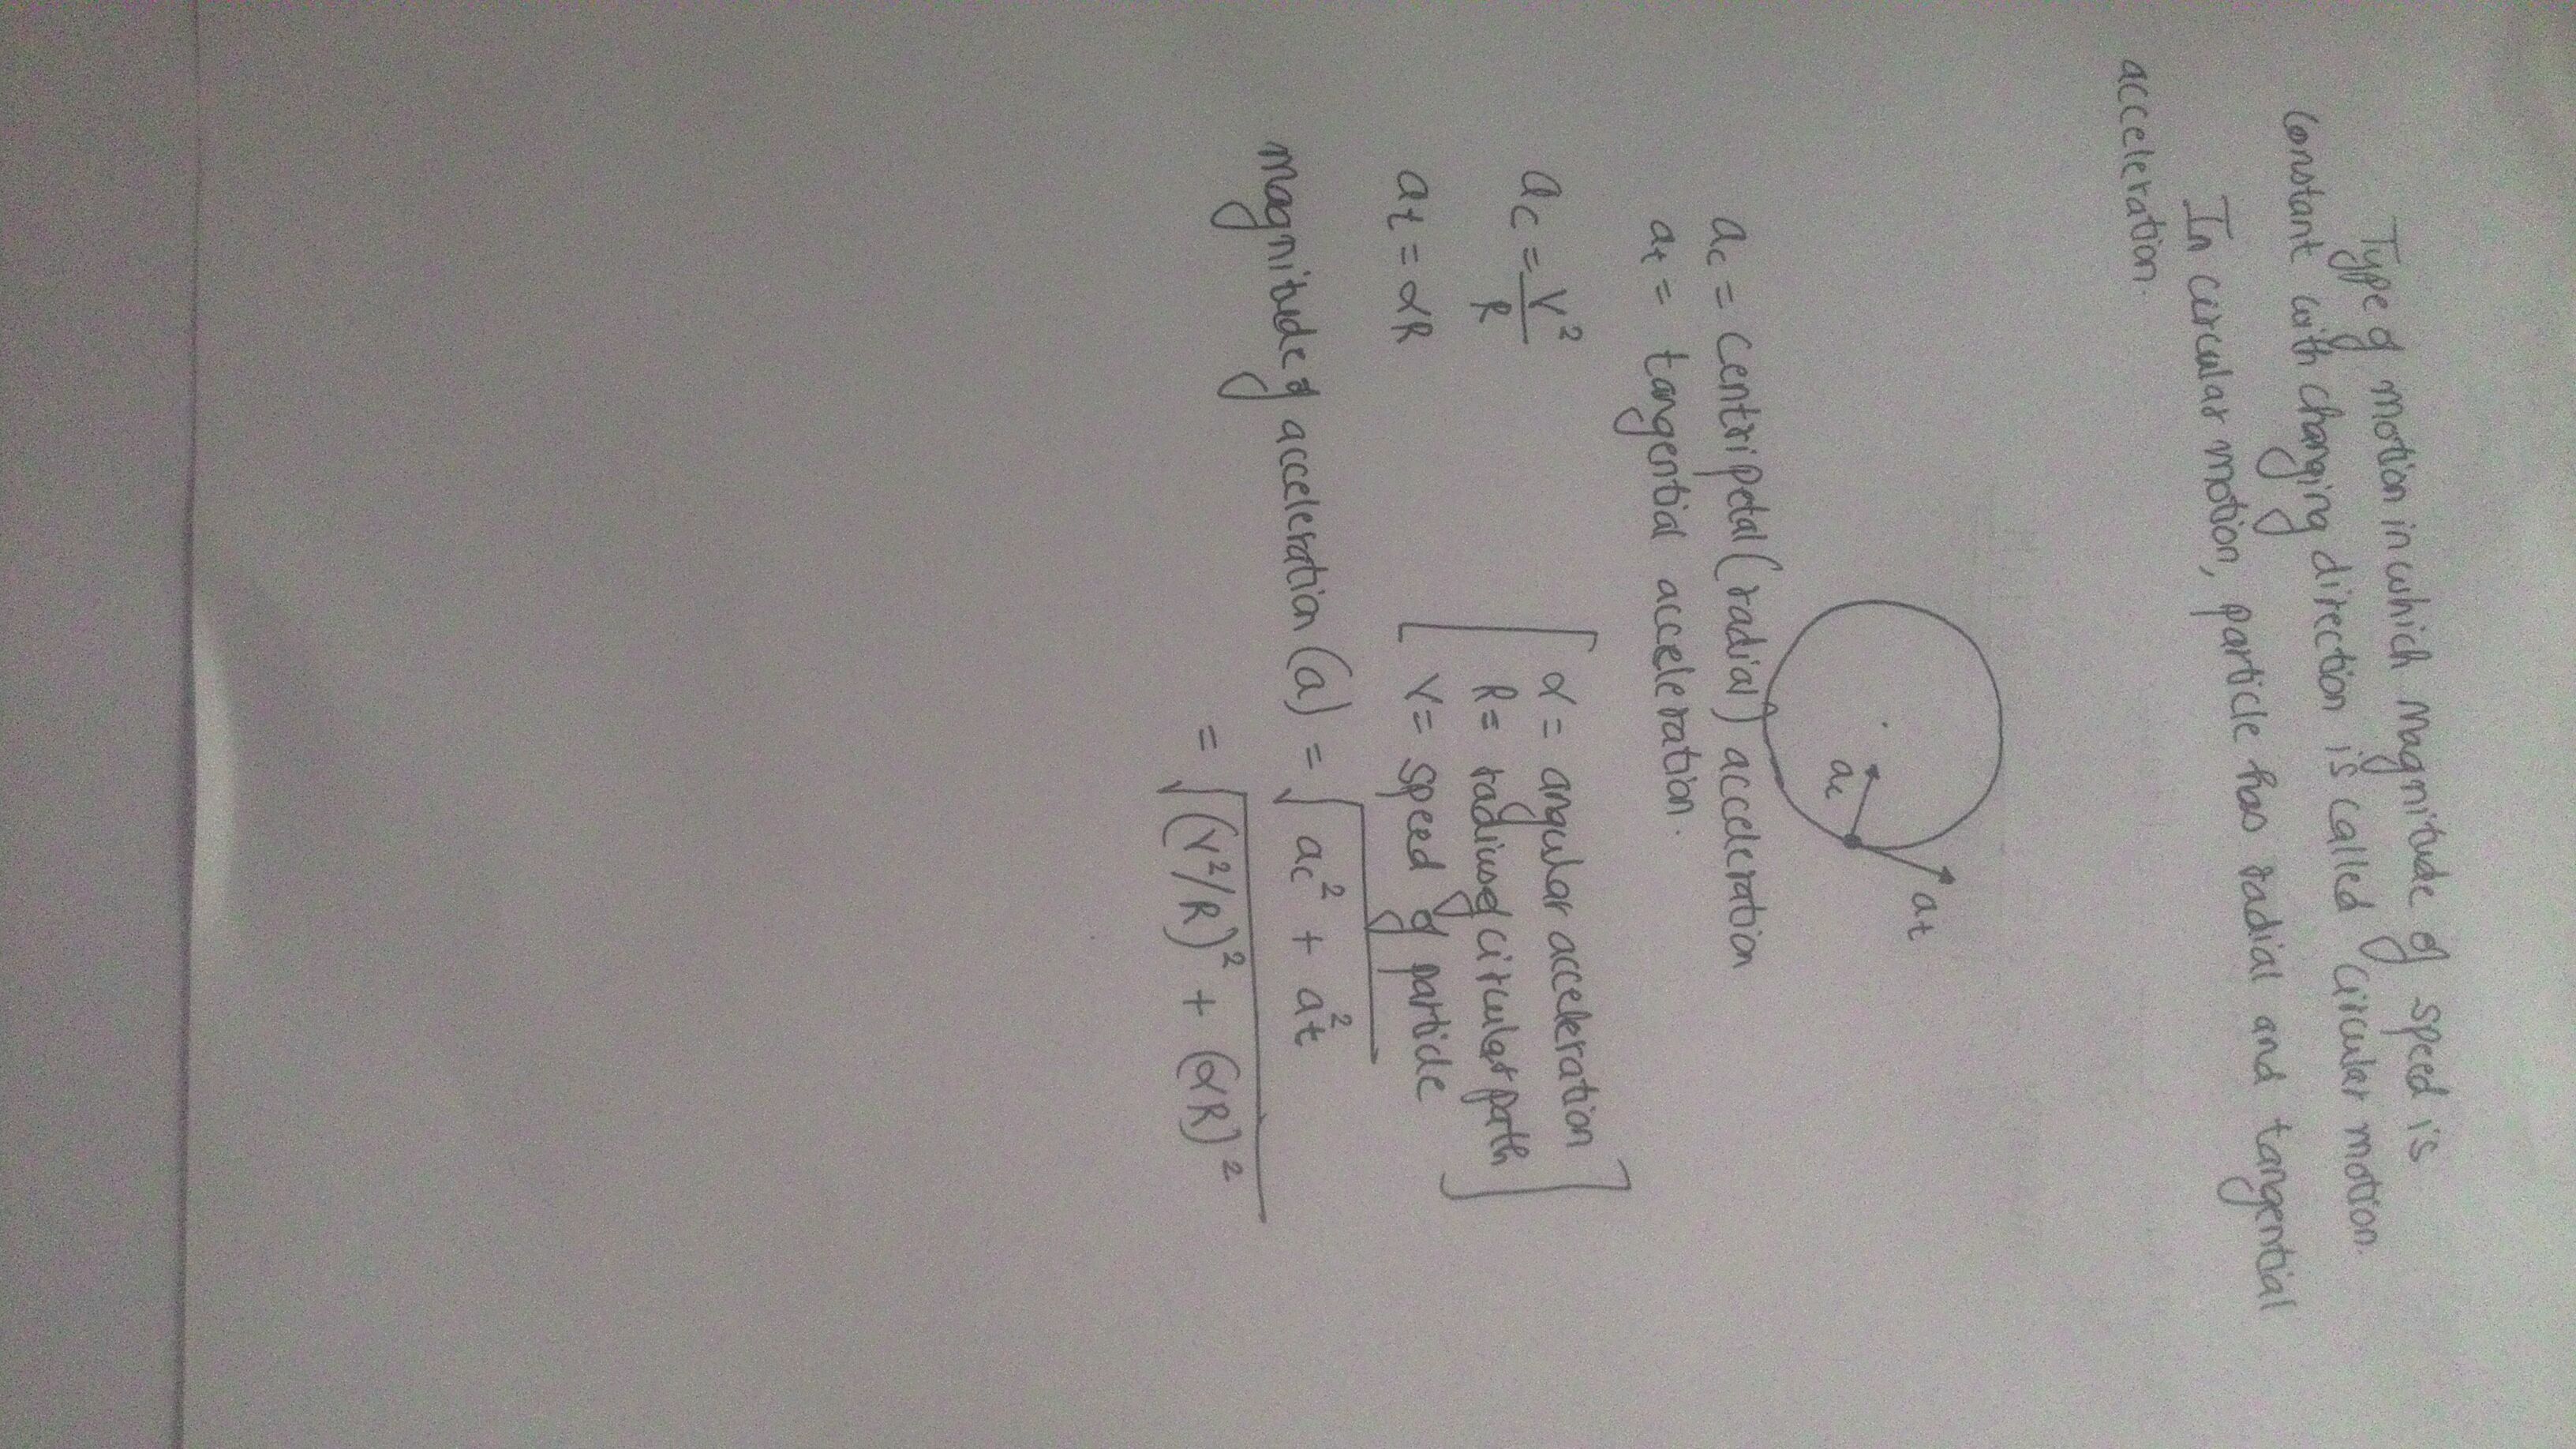 Type of motion in which magnitude of speed is
constant with changing direction is called circular motion.
In circular motion, particle has radial and tangential
acceleration.
at
ac
ac = centripetal (radial) acceleration
at = tangential acceleration.
ac = V²/R
at = αR
[α = angular acceleration
R = radius of circular path
V = speed of particle]
magnitude of acceleration (a) = √(ac² + at²)
= √((V²/R)² + (αR)²)